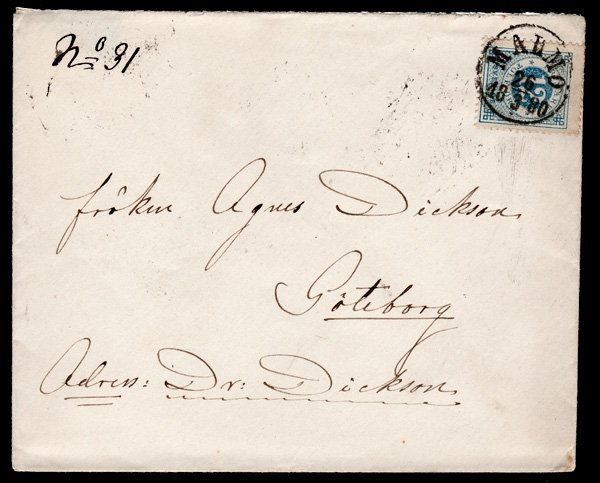 No 31
MALMÖ
26
18 5 80
fröken Agnes Dickson
Göteborg
Adress: Dr: Dickson